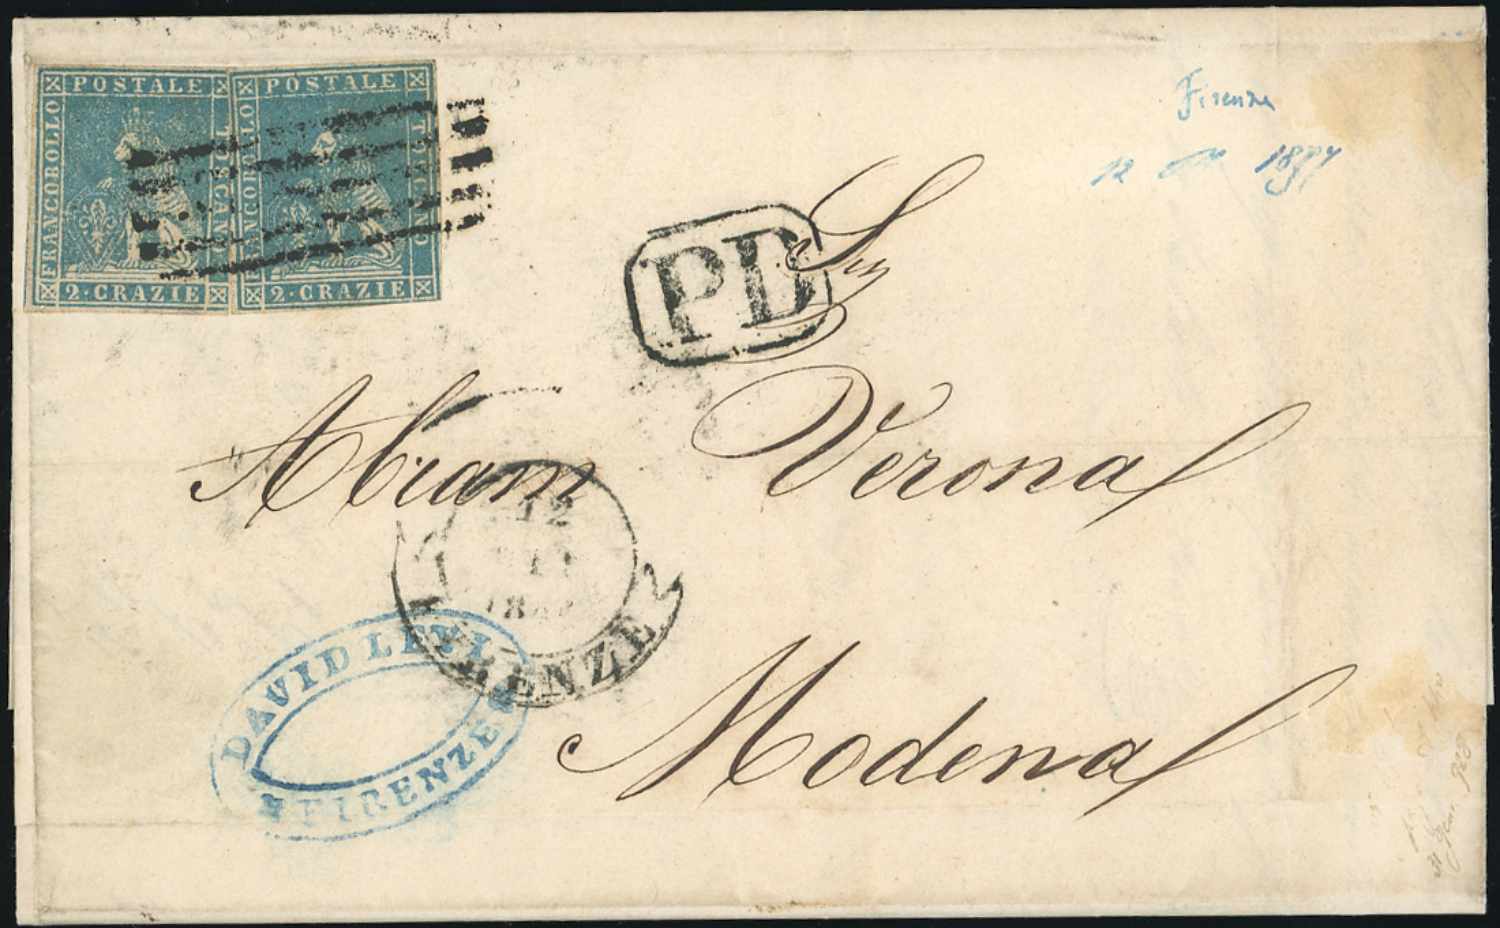 POSTALE
FRANCOBOLLO
TOSCANO
2·CRAZIE
POSTALE
FRANCOBOLLO
TOSCANO
2·CRAZIE
Firenze
12 1857
PD
Sig
Abram Verona
12
FIRENZE
DAVID LEVI
FIRENZE
Modena